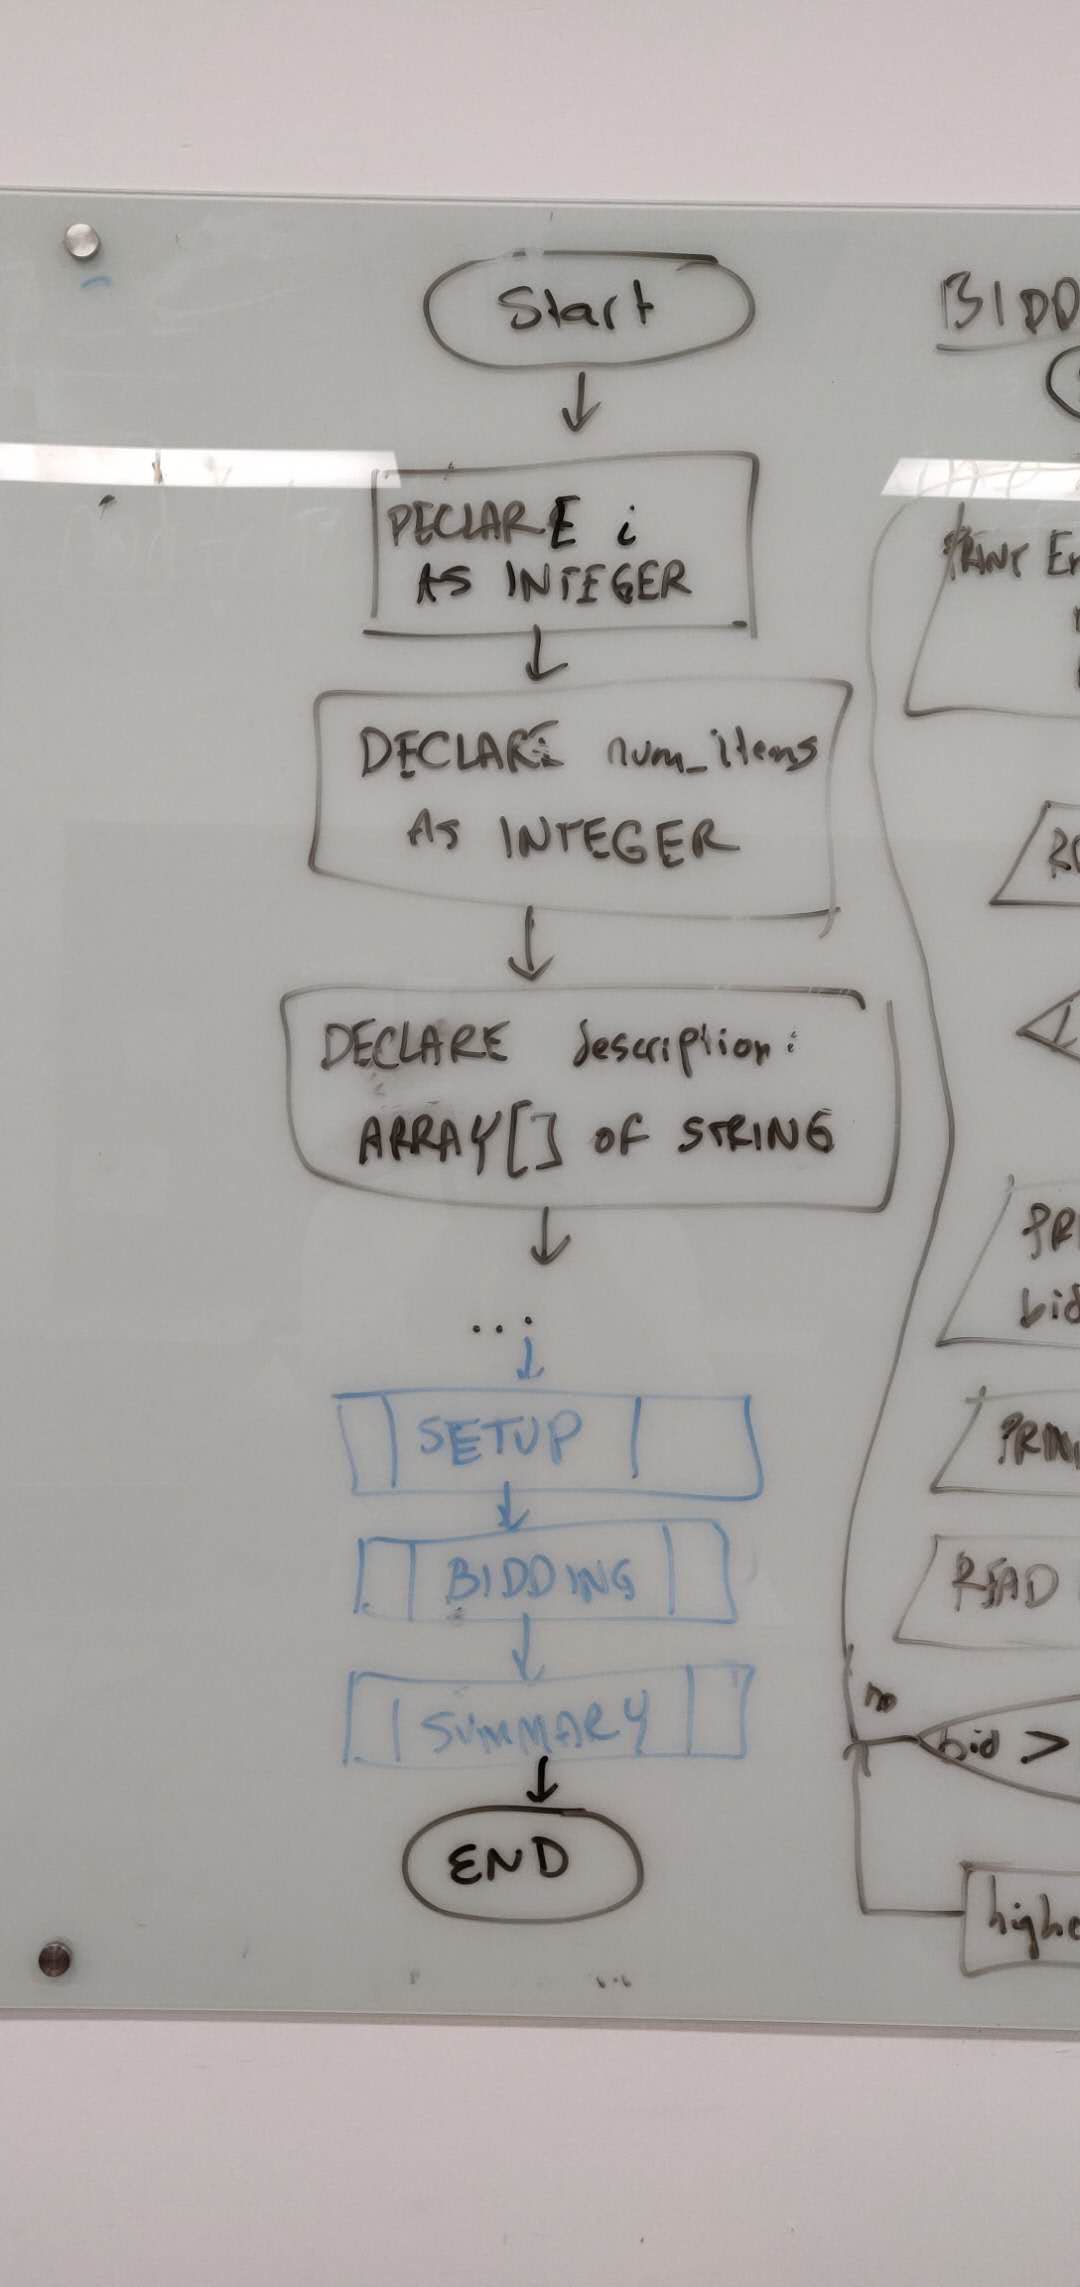 Start
DECLARE i
AS INTEGER
DECLARE num_items
AS INTEGER
DECLARE description:
ARRAY[] OF STRING
...
SETUP
BIDDING
SUMMARY
END
BIDD
PRINT En
PRI
bid
PRIN
READ
no
bid >
highe